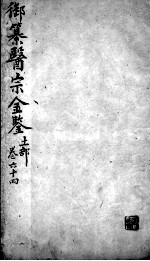 御纂醫宗金鑒
土部
卷六十四